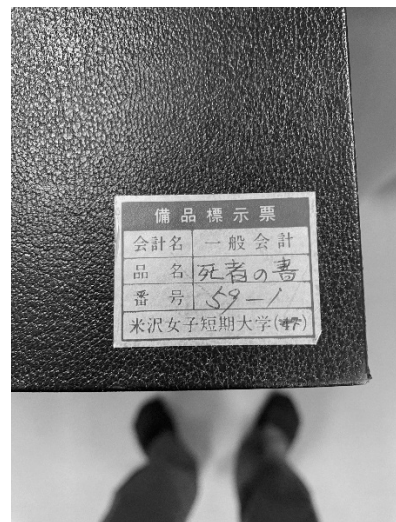 備品標示票
会計名 一般会計
品名 死者の書
番号 59-1
米沢女子短期大学